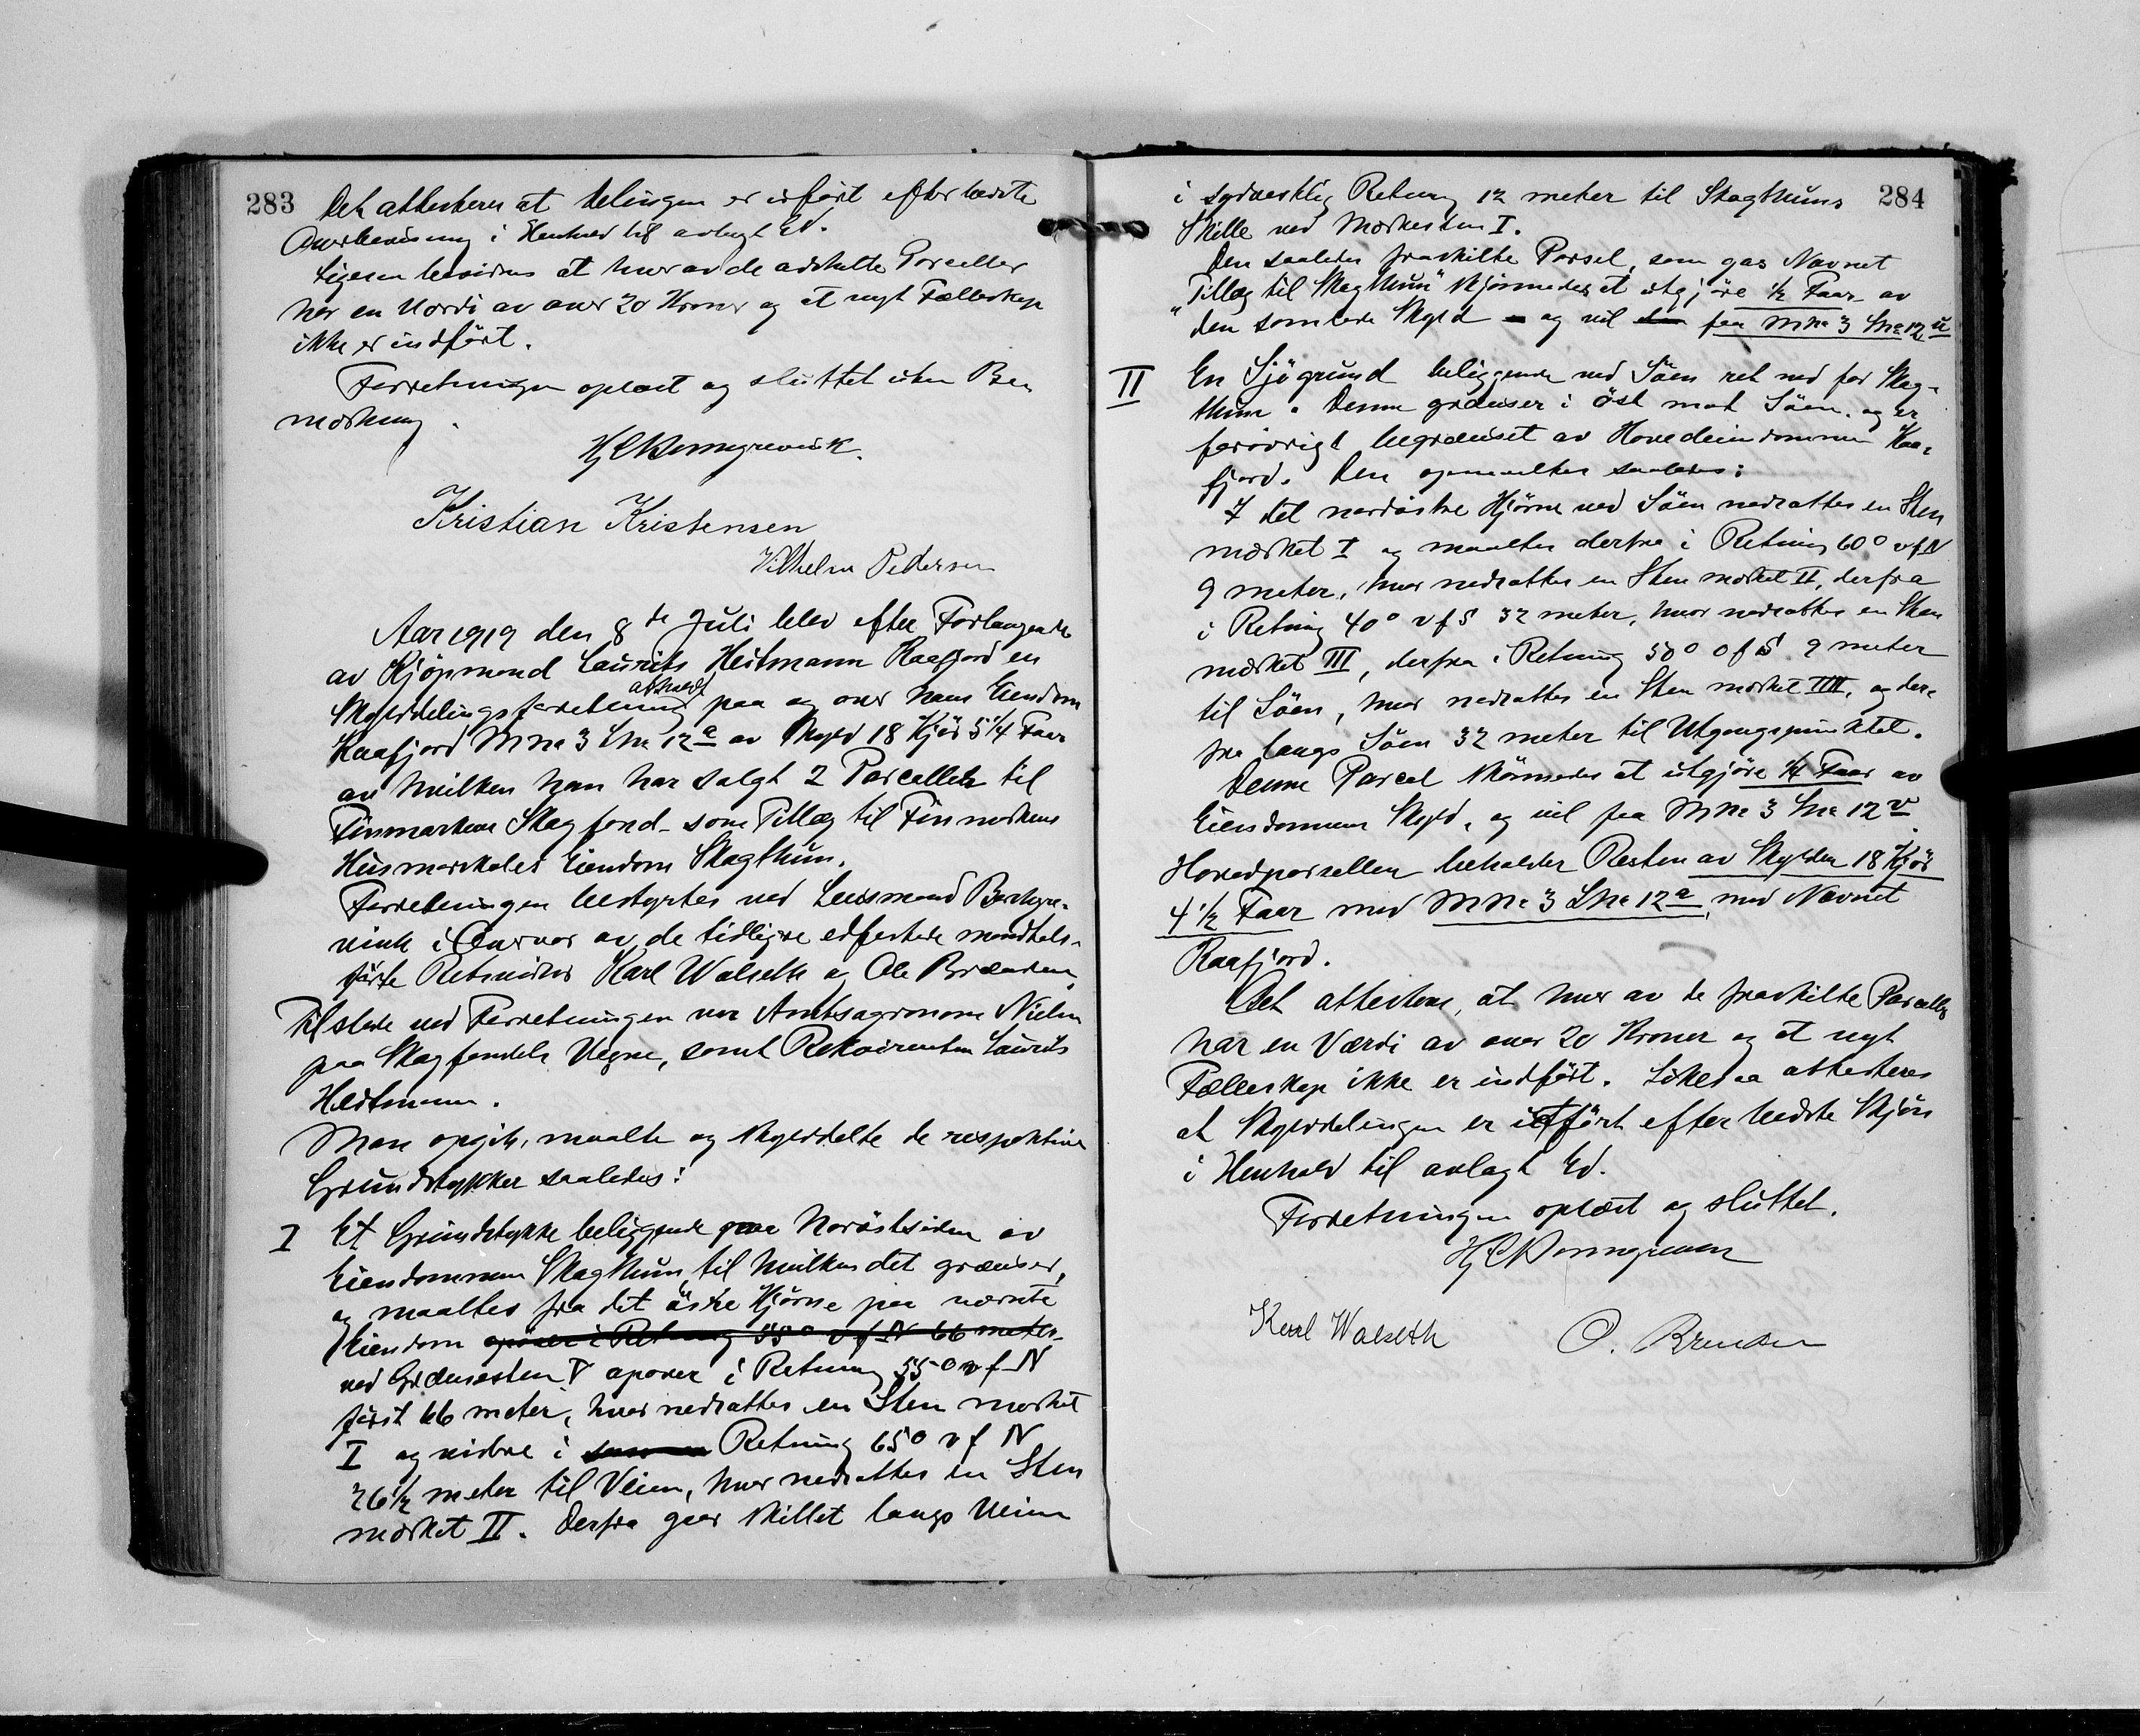 283
Det attesteres at Delingen er utført efter bedste
Overbevisning i Henhold til avlagt Ed.
Ligesaa bevidnes at hver av de adskilte Parceller
har en Værdi av over 20 Kroner og at nyt Fællesskap
ikke er indført.
Forretningen oplæst og sluttet uten Be-
mærkning.
Kristian Kristensen
Vilhelm Pedersen
Aar 1919 den 8de Juli blev efter Forlangende
av Kjøpmand Laurits Heitmann Kaafjord en
Skylddelingsforretning avholdt paa og over hans Eiendom
Kaafjord MNo 3 LNo 12a av Skyld 18 Kjør 5 1/4 Faar
av hvilken han har solgt 2 Parceller til
Finmarkens Skogfond som Tillæg til Finmarkens
Eiendom Skogthun.
Forretningen bestyrtes ved Lensmand
i Overvær av de tidligere edfestede mandtals-
førte Retsvidner Karl Walseth og Ole Brænden
Tilstede ved Forretningen var Amtsagronom Nielsen
paa Skogfondets Vegne, samt Rekvirenten Laurits
Heitmann.
Man opgik, maalte og skylddelte de respektive
Grundstykker saaledes:
I Et Grundstykke beliggende paa Nordøstsiden av
Eiendommen Skogthun til hvilken det grænser,
og maaltes fra det østre Hjørne paa nævnte
Eiendom opover i Retning 55° v f N 66 meter
ved Grænsesten V opover i Retning 55° v f N
først 66 meter, hvor nedsattes en Sten merket
I og videre i samme Retning 65° v f N
26 1/2 meter til Veien, hvor nedsattes en Sten
mærket II. Derfra gaar Skillet langs Veien
284
i sydvestlig Retning 12 meter til Skogthuns
Skille ved Merkesten I.
Den saaledes fraskilte Parsel, som gas Navnet
"Tillæg til Skogthun" skjønnedes at utgjøre 1/2 Faar av
den samlede Skyld og vil faa MNo 3 LNo 12 u
II En Sjøgrund beliggende ved Søen ret ned for Skog-
thun. Denne grænser i øst mot Søen og er
forøvrigt begrænset av Hovedeiendommen Kaa-
fjord. Den opmaaltes saaledes:
I det nordøstre Hjørne ved Søen nedsattes en Sten
mærket I og maaltes derfra i Retning 60° v f N
9 meter, hvor nedsattes en Sten mærket II, derfra
i Retning 40° v f S 32 meter, hvor nedsattes en Sten
mærket III, derfra i Retning 50° o f S 9 meter
til Søen, hvor nedsattes en Sten mærket IIII, og der-
fra langs Søen 32 meter til Utgangspunktet.
Denne Parcel skönnedes at utgjøre 1/4 Faar av
Eiendommens Skyld, og vil faa MNo 3 LNo 12 v
Hovedparsellen beholder Resten av Skylden 18 Kjør
4 1/2 Faar med MNo 3 LNo 12a, med Navnet
Kaafjord.
Det attesteres, at hver av de fraskilte Parceller
har en Værdi av over 20 Kroner og at nyt
Fælleskap ikke er indført. Likesaa attesteres
at Skylddelingen er utført efter bedste Skjøn
i Henhold til avlagt Ed.
Forretningen oplæst og sluttet.
Karl Walseth
O. Brænden